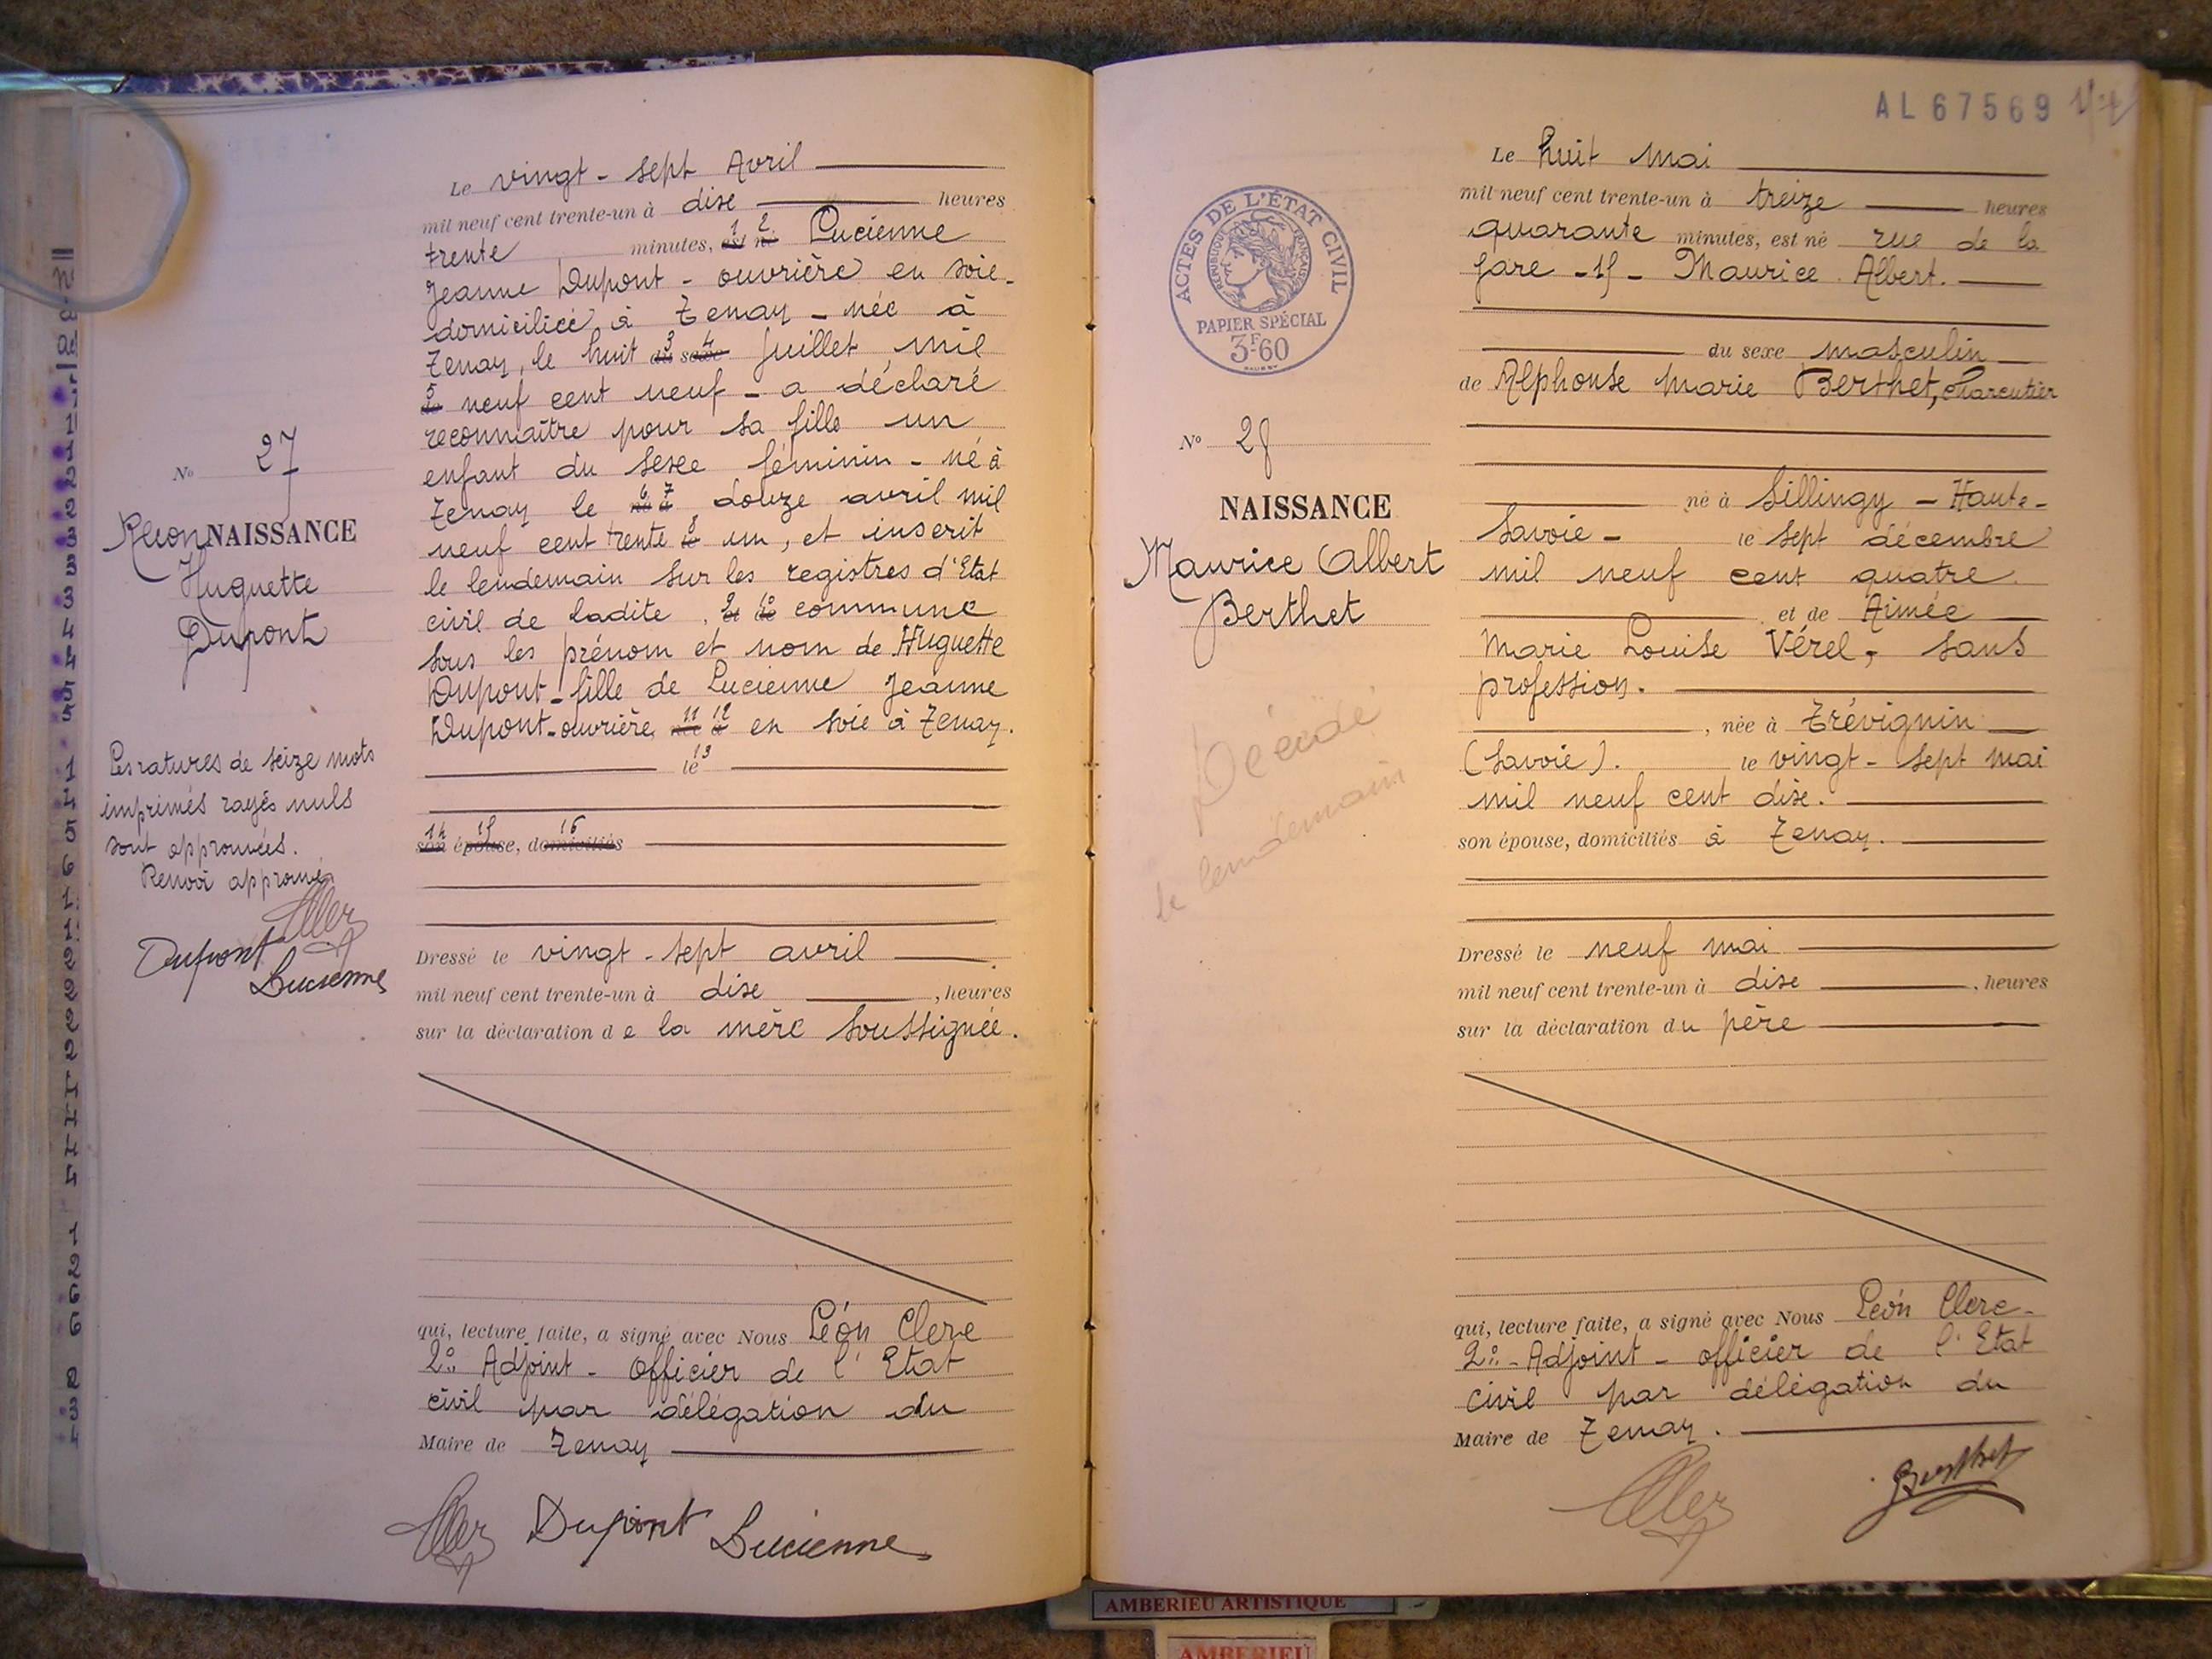 N° 27
ReconNAISSANCE
Huguette
Dupont
Les ratures de seize mots
imprimés rayés nuls
sont approuvées.
Renvoi approuvé
Dupont
Lucienne
Le vingt-sept Avril
mil neuf cent trente-un à dixe heures
trente minutes, est né Lucienne
Jeanne Dupont - ouvrière en soie -
domiciliée à Tenay - née à
Tenay, le huit du sexe Juillet mil
de neuf cent neuf - a déclaré
reconnaître pour sa fille un
enfant du sexe féminin - né à
Tenay le né à douze avril mil
neuf cent trente le un, et inscrit
le lendemain sur les registres d'Etat
civil de ladite et de commune
sous les prénom et nom de Huguette
Dupont - fille de Lucienne Jeanne
Dupont - ouvrière née à en soie à Tenay.
le
son épouse, domiciliés
Dressé le vingt-sept avril
mil neuf cent trente-un à dixe, heures
sur la déclaration de la mère soussignée.
qui, lecture faite, a signé avec Nous Léon Clerc
2e Adjoint - Officier de l'Etat
civil par délégation du
Maire de Tenay
Dupont Lucienne
AL 67569
ACTES DE L'ÉTAT CIVIL
RÉPUBLIQUE FRANÇAISE
PAPIER SPÉCIAL
3F60
N° 28
NAISSANCE
Maurice Albert
Berthet
Décédé
le lendemain
Le huit Mai
mil neuf cent trente-un à treize heures
quarante minutes, est né rue de la
gare - 15 - Maurice Albert.
du sexe masculin
de Alphonse Marie Berthet, charcutier
né à Sillingy - Haute-
Savoie - le sept décembre
mil neuf cent quatre
et de Aimée
Marie Louise Vérel, sans
profession.
, née à Trévignin
(Savoie). le vingt-sept mai
mil neuf cent dixe.
son épouse, domiciliés à Tenay.
Dressé le neuf mai
mil neuf cent trente-un à dixe, heures
sur la déclaration du père
qui, lecture faite, a signé avec Nous Léon Clerc -
2e - Adjoint - officier de l'Etat
civil par délégation du
Maire de Tenay.
Berthet
AMBERIEU ARTISTIQUE
AMBERIEU